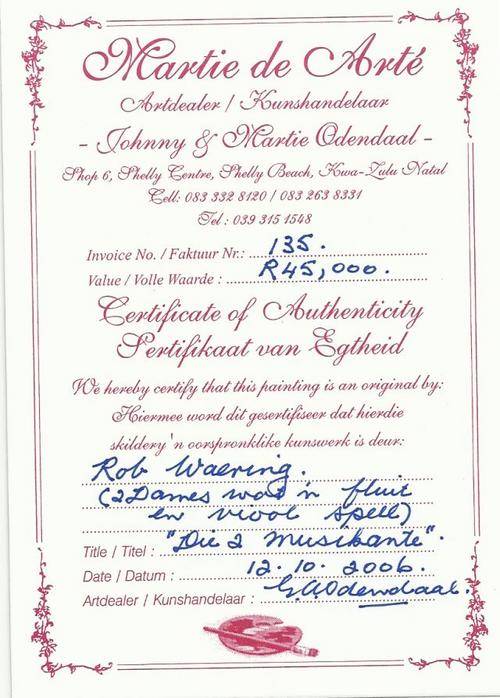 Martie de Arté
Artdealer / Kunshandelaar
- Johnny & Martie Odendaal -
Shop 6, Shelly Centre, Shelly Beach, Kwa-Zulu Natal
Cell: 083 332 8120 / 083 263 8331
Tel : 039 315 1548
Invoice No. / Faktuur Nr.: 135.
Value / Volle Waarde : R45,000.
Certificate of Authenticity
Sertifikaat van Egtheid
We hereby certify that this painting is an original by:
Hiermee word dit gesertifiseer dat hierdie
skildery 'n oorspronklike kunswerk is deur:
Rob Waering.
(2 Dames wat 'n fluit
en viool speel)
Title / Titel : "Die 2 Musikante".
Date / Datum : 12.10.2006.
Artdealer / Kunshandelaar : GA Odendaal.